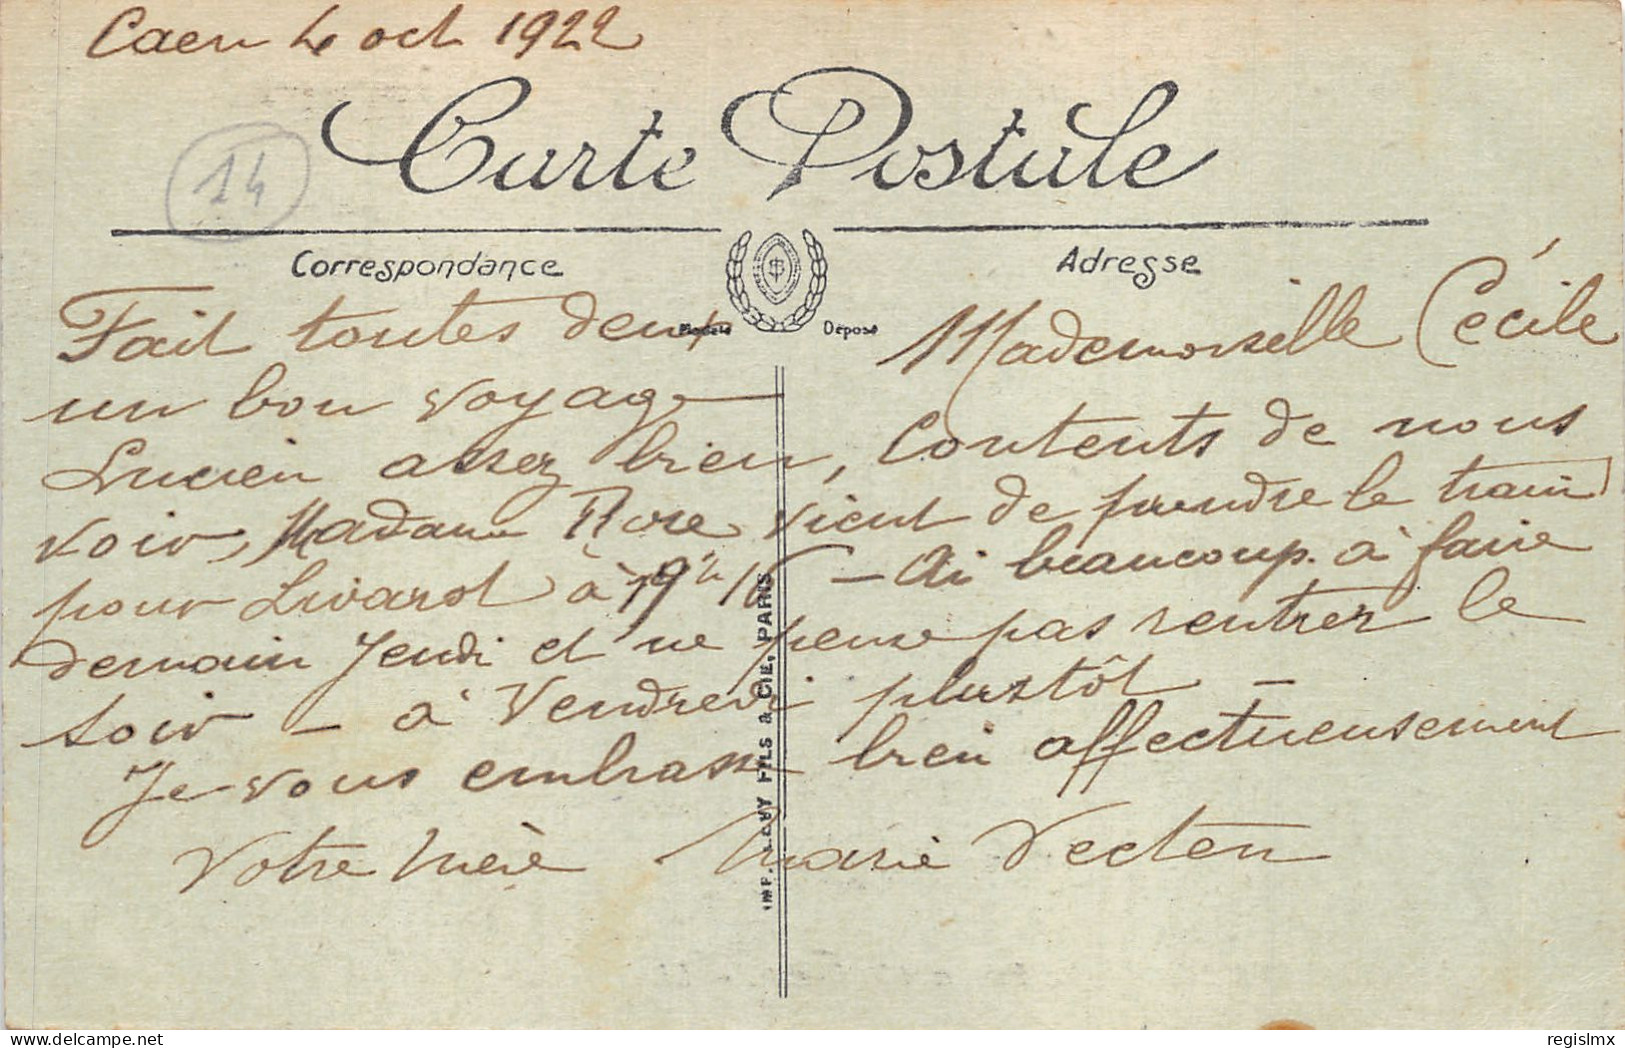 Caen 4 oct 1922
14
Carte Postale
Correspondance
Adresse
$
Modèle Déposé
Mademoiselle Cécile
Fait toutes deux
un bon voyage
Lucien assez bien, contents de nous
voir, Madame Rose vient de prendre le train
pour Livarot à 19h 16 - Ai beaucoup à faire
demain Jeudi et ne pense pas rentrer le
soir - à Vendredi plustôt -
Je vous embrasse bien affectueusement
Votre mère Marie Vecten
IMP. LEVY FILS & CIE, PARIS
regislmx